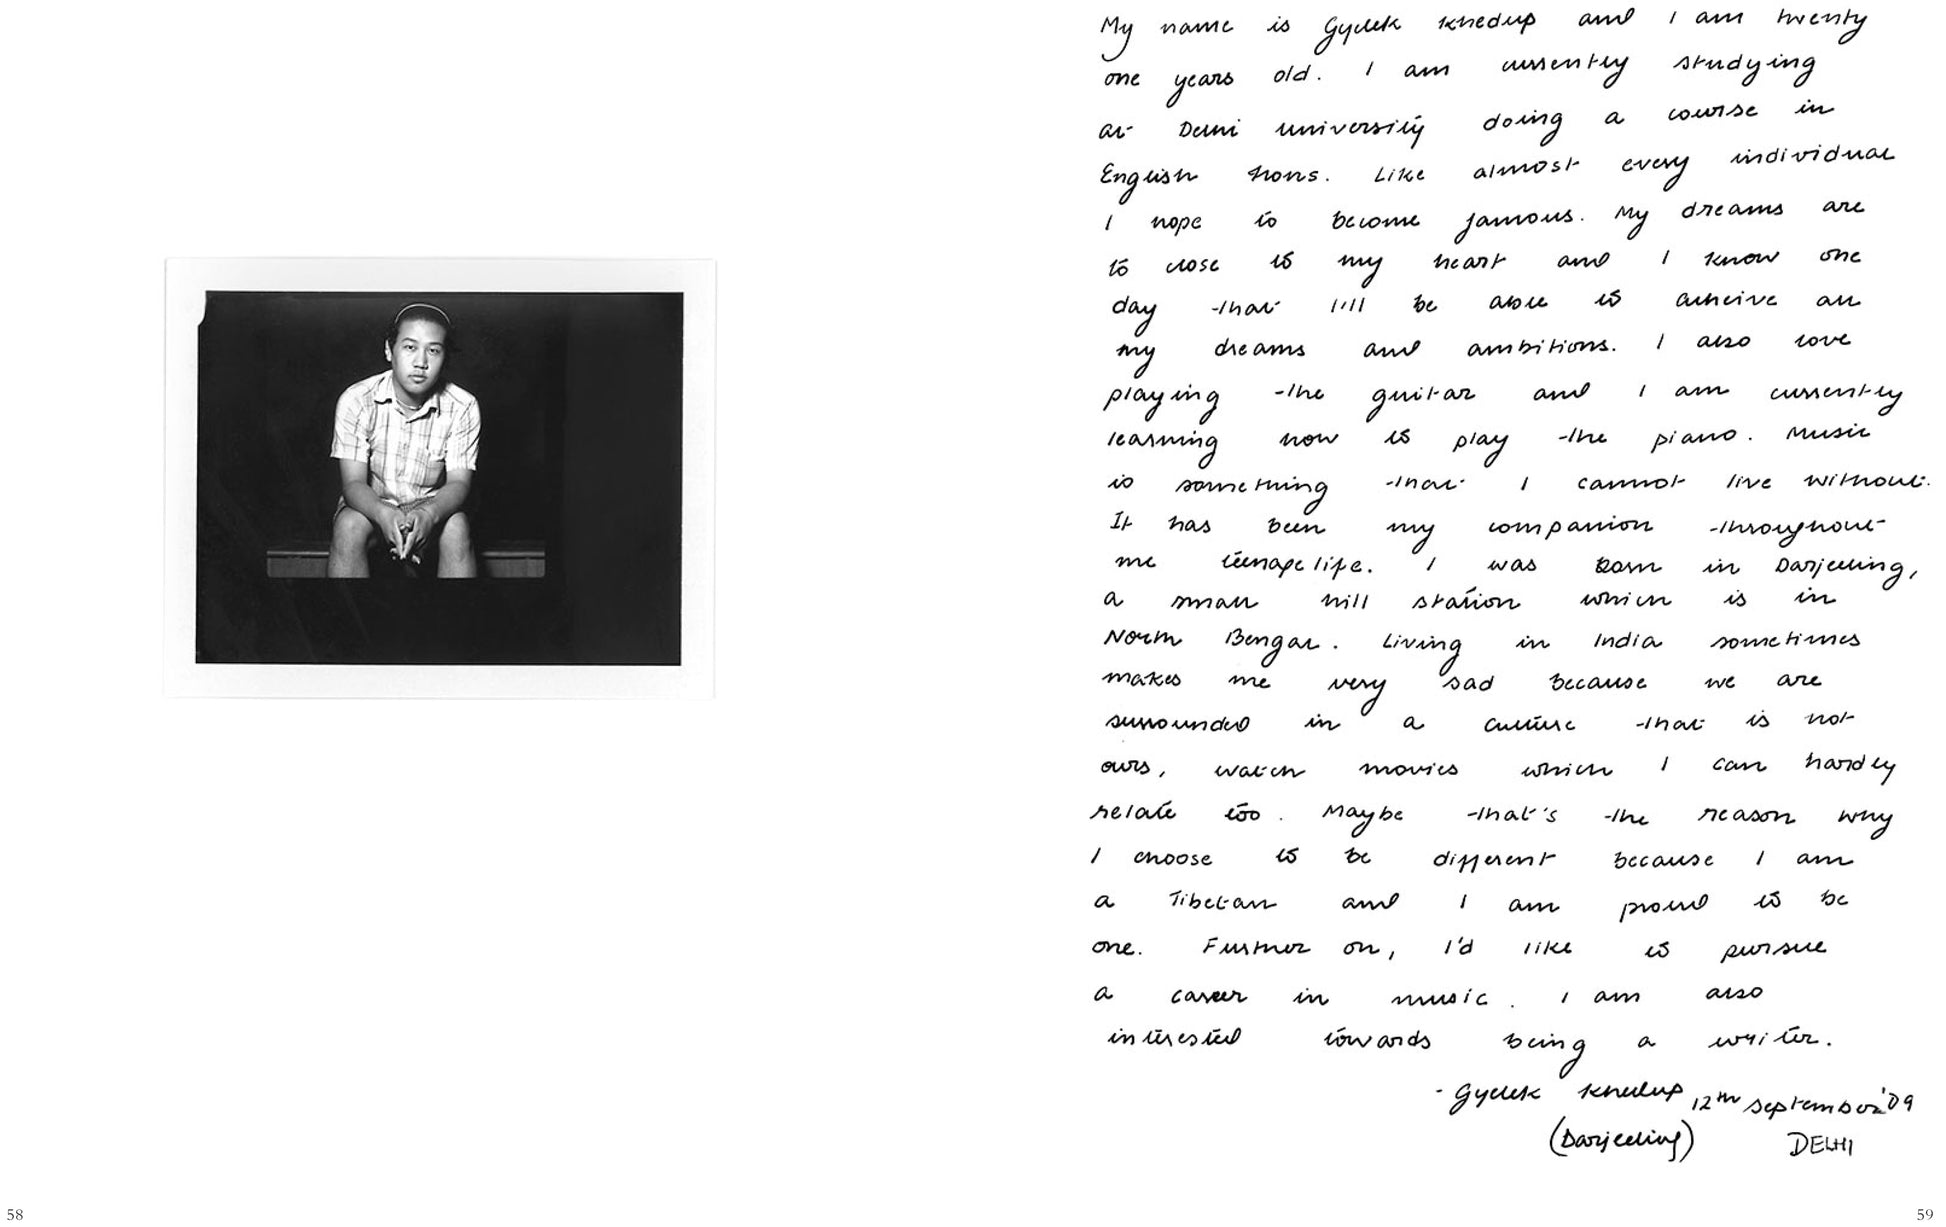 My name is Gyelek Khedup and I am twenty
one years old. I am currently studying
at Delhi university doing a course in
English hons. Like almost every individual
I hope to become famous. My dreams are
to close to my heart and I know one
day that I'll be able to acheive all
my dreams and ambitions. I also love
playing the guitar and I am currently
learning how to play the piano. Music
is something that I cannot live without.
It has been my companion throughout
me teenage life. I was born in Darjeeling,
a small hill station which is in
North Bengal. Living in India sometimes
makes me very sad because we are
surrounded in a culture that is not
ours, watch movies which I can hardly
relate too. Maybe that's the reason why
I choose to be different because I am
a Tibetan and I am proud to be
one. Further on, I'd like to pursue
a career in music. I am also
interested towards being a writer.
- Gyelek Khedup 12th September'09
(Darjeeling) DELHI
58
59